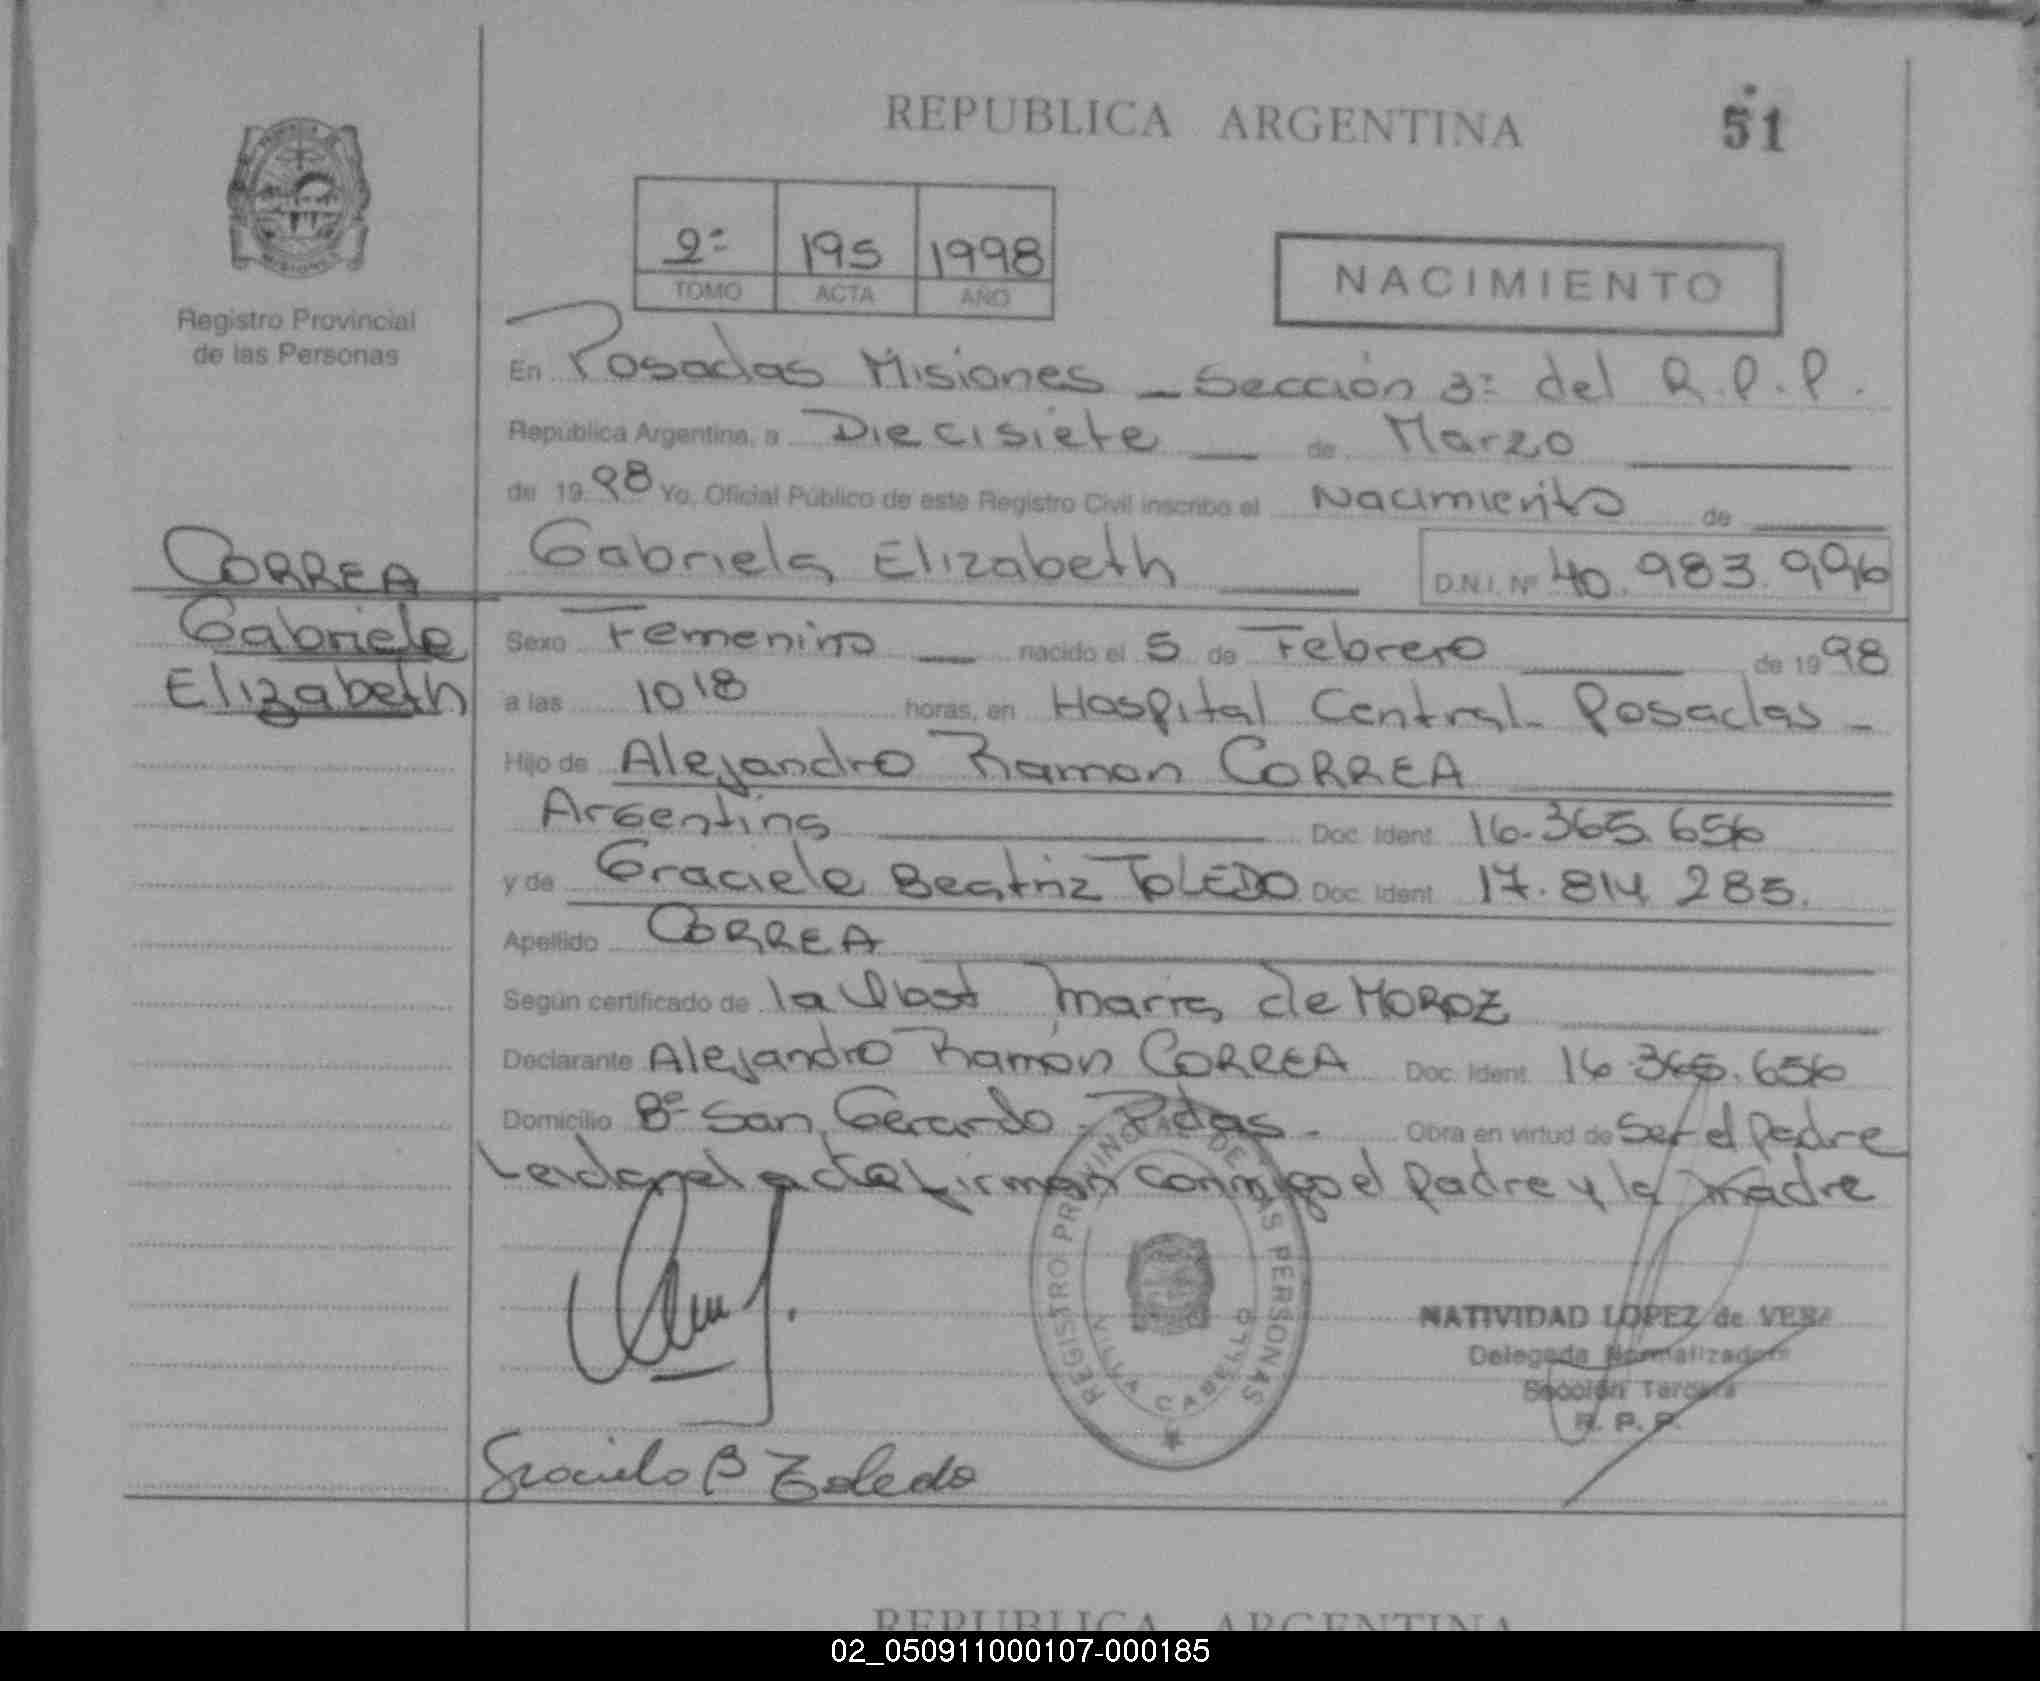 REPUBLICA ARGENTINA
51
2º 195 1998
TOMO ACTA AÑO
NACIMIENTO
Registro Provincial
de las Personas
En Posadas Misiones - Sección 3ª del R.P.P.
República Argentina, a Diecisiete de Marzo
de 1998 Yo, Oficial Público de este Registro Civil inscribo el Nacimiento de
CORREA
Gabriela Elizabeth
Gabriela Elizabeth D.N.I. Nº 40.983.996
Sexo Femenino nacido el 5 de Febrero de 1998
a las 10 18 horas, en Hospital Central - Posadas -
Hijo de Alejandro Ramon CORREA
Argentina Doc. Ident. 16.365.656
y de Graciela Beatriz TOLEDO Doc. Ident. 17.814.285.
Apellido CORREA
Según certificado de la Obst Maria de MOROZ
Declarante Alejandro Ramón CORREA Doc. Ident. 16.365.656
Domicilio Bº San Gerardo - Pdas. - Obra en virtud de Ser el padre
Leida el acta firman conmigo el padre y la madre
REGISTRO PROVINCIAL DE LAS PERSONAS
VILLA CABELLO
NATIVIDAD LOPEZ de VERA
Delegada Normalizadora
Sección Tercera
R. P. P.
Graciela B Toledo
REPUBLICA ARGENTINA
02_050911000107-000185